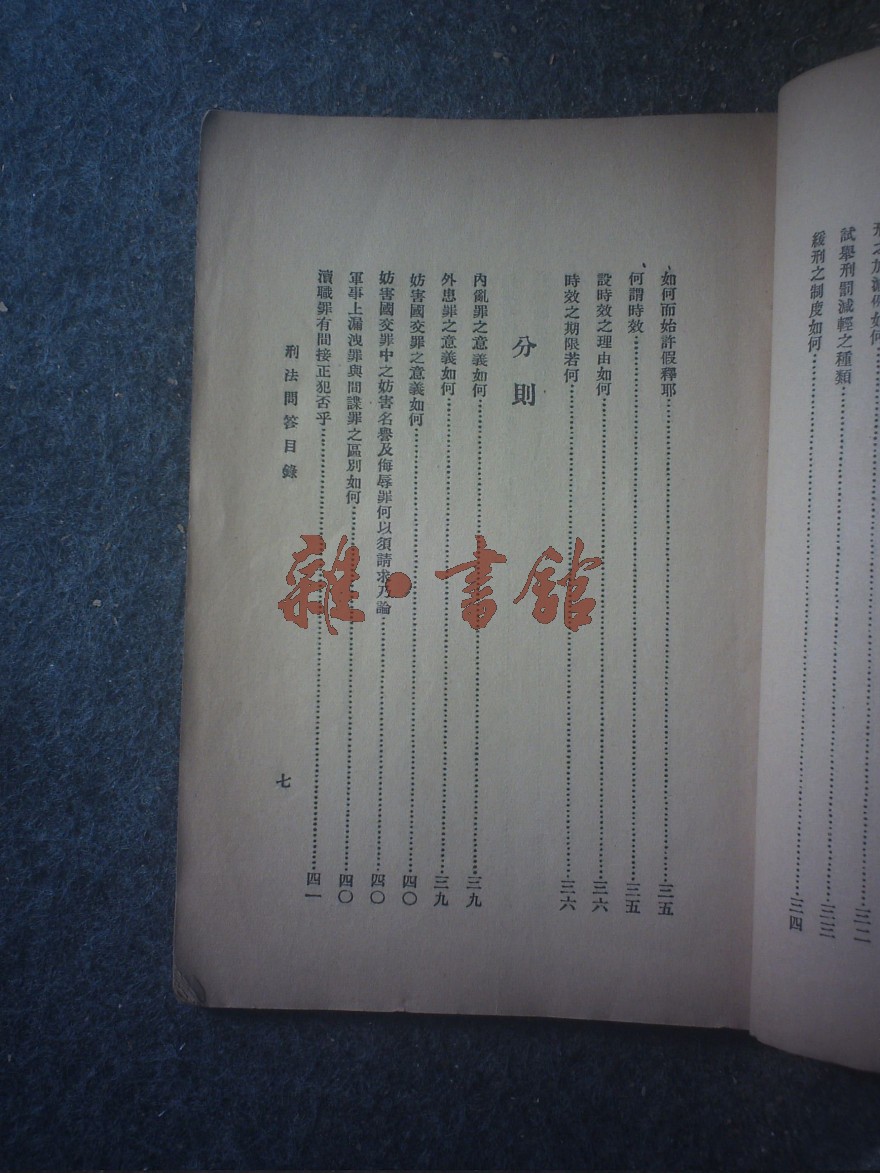 刑之加減例如何……三二
試舉刑罰減輕之種類……三三
緩刑之制度如何……三四
如何而始許假釋耶……三五
何謂時效……三五
設時效之理由如何……三六
時效之期限若何……三六
分則
內亂罪之意義如何……三九
外患罪之意義如何……三九
妨害國交罪之意義如何……四〇
妨害國交罪中之妨害名譽及侮辱罪何以須請求乃論……四〇
軍事上漏洩罪與間諜罪之區別如何……四〇
瀆職罪有間接正犯否乎……四一
刑法問答目錄
七
雜·書館